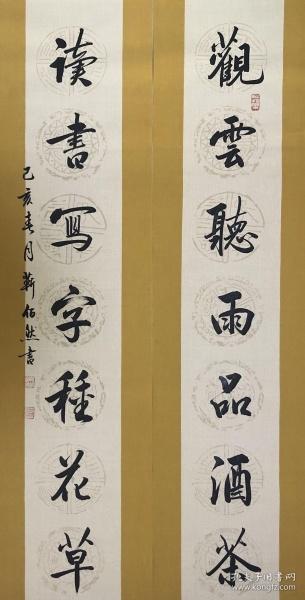 觀雲聽雨品酒茶
读書寫字種花草
己亥春月靳佰然書
孔夫子旧书网